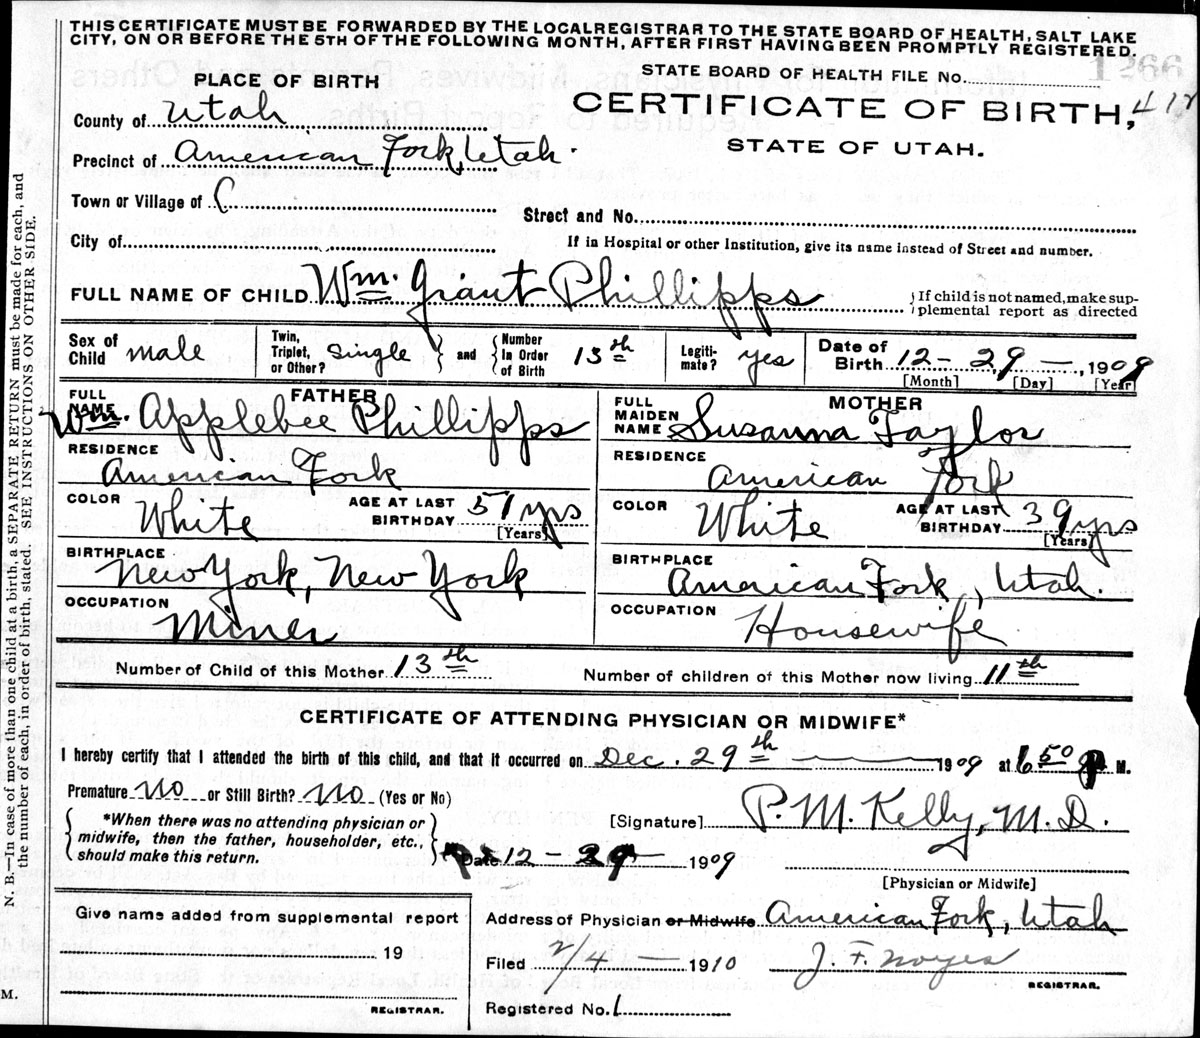 THIS CERTIFICATE MUST BE FORWARDED BY THE LOCAL REGISTRAR TO THE STATE BOARD OF HEALTH, SALT LAKE
CITY, ON OR BEFORE THE 5TH OF THE FOLLOWING MONTH, AFTER FIRST HAVING BEEN PROMPTLY REGISTERED.
PLACE OF BIRTH
STATE BOARD OF HEALTH FILE No. 1266
County of Utah
CERTIFICATE OF BIRTH, 412
Precinct of American Fork, Utah.
STATE OF UTAH.
Town or Village of
Street and No.
City of
If in Hospital or other Institution, give its name instead of Street and number.
FULL NAME OF CHILD Wm. Grant Phillipps
If child is not named, make sup-
plemental report as directed
Sex of Child male
Twin, Triplet, or Other? Single
and
Number In Order of Birth 13th
Legiti-mate? yes
Date of Birth 12 - 29 - , 1909
[Month] [Day] [Year]
FATHER
FULL NAME Wm. Applebee Phillipps
RESIDENCE
American Fork
COLOR White AGE AT LAST BIRTHDAY 51 yrs
[Years]
BIRTHPLACE
New York, New York
OCCUPATION
Miner
MOTHER
FULL MAIDEN NAME Susanna Taylor
RESIDENCE
American Fork
COLOR White AGE AT LAST BIRTHDAY 39 yrs
[Years]
BIRTHPLACE
American Fork, Utah.
OCCUPATION
Housewife
Number of Child of this Mother 13th
Number of children of this Mother now living 11th
CERTIFICATE OF ATTENDING PHYSICIAN OR MIDWIFE*
I hereby certify that I attended the birth of this child, and that it occurred on Dec. 29th 1909 at 6 50 P M.
Premature No or Still Birth? No (Yes or No)
*When there was no attending physician or
midwife, then the father, householder, etc.,
should make this return.
[Signature] P. M. Kelly, M.D.
Date 12 - 29 - 1909
[Physician or Midwife]
Give name added from supplemental report
19
REGISTRAR.
Address of Physician or Midwife American Fork, Utah
Filed 2/4 - 1910 J. F. Noyes
REGISTRAR.
Registered No. 1
N. B.—In case of more than one child at a birth, a SEPARATE RETURN must be made for each, and
the number of each, in order of birth, stated. SEE INSTRUCTIONS ON OTHER SIDE.
M.